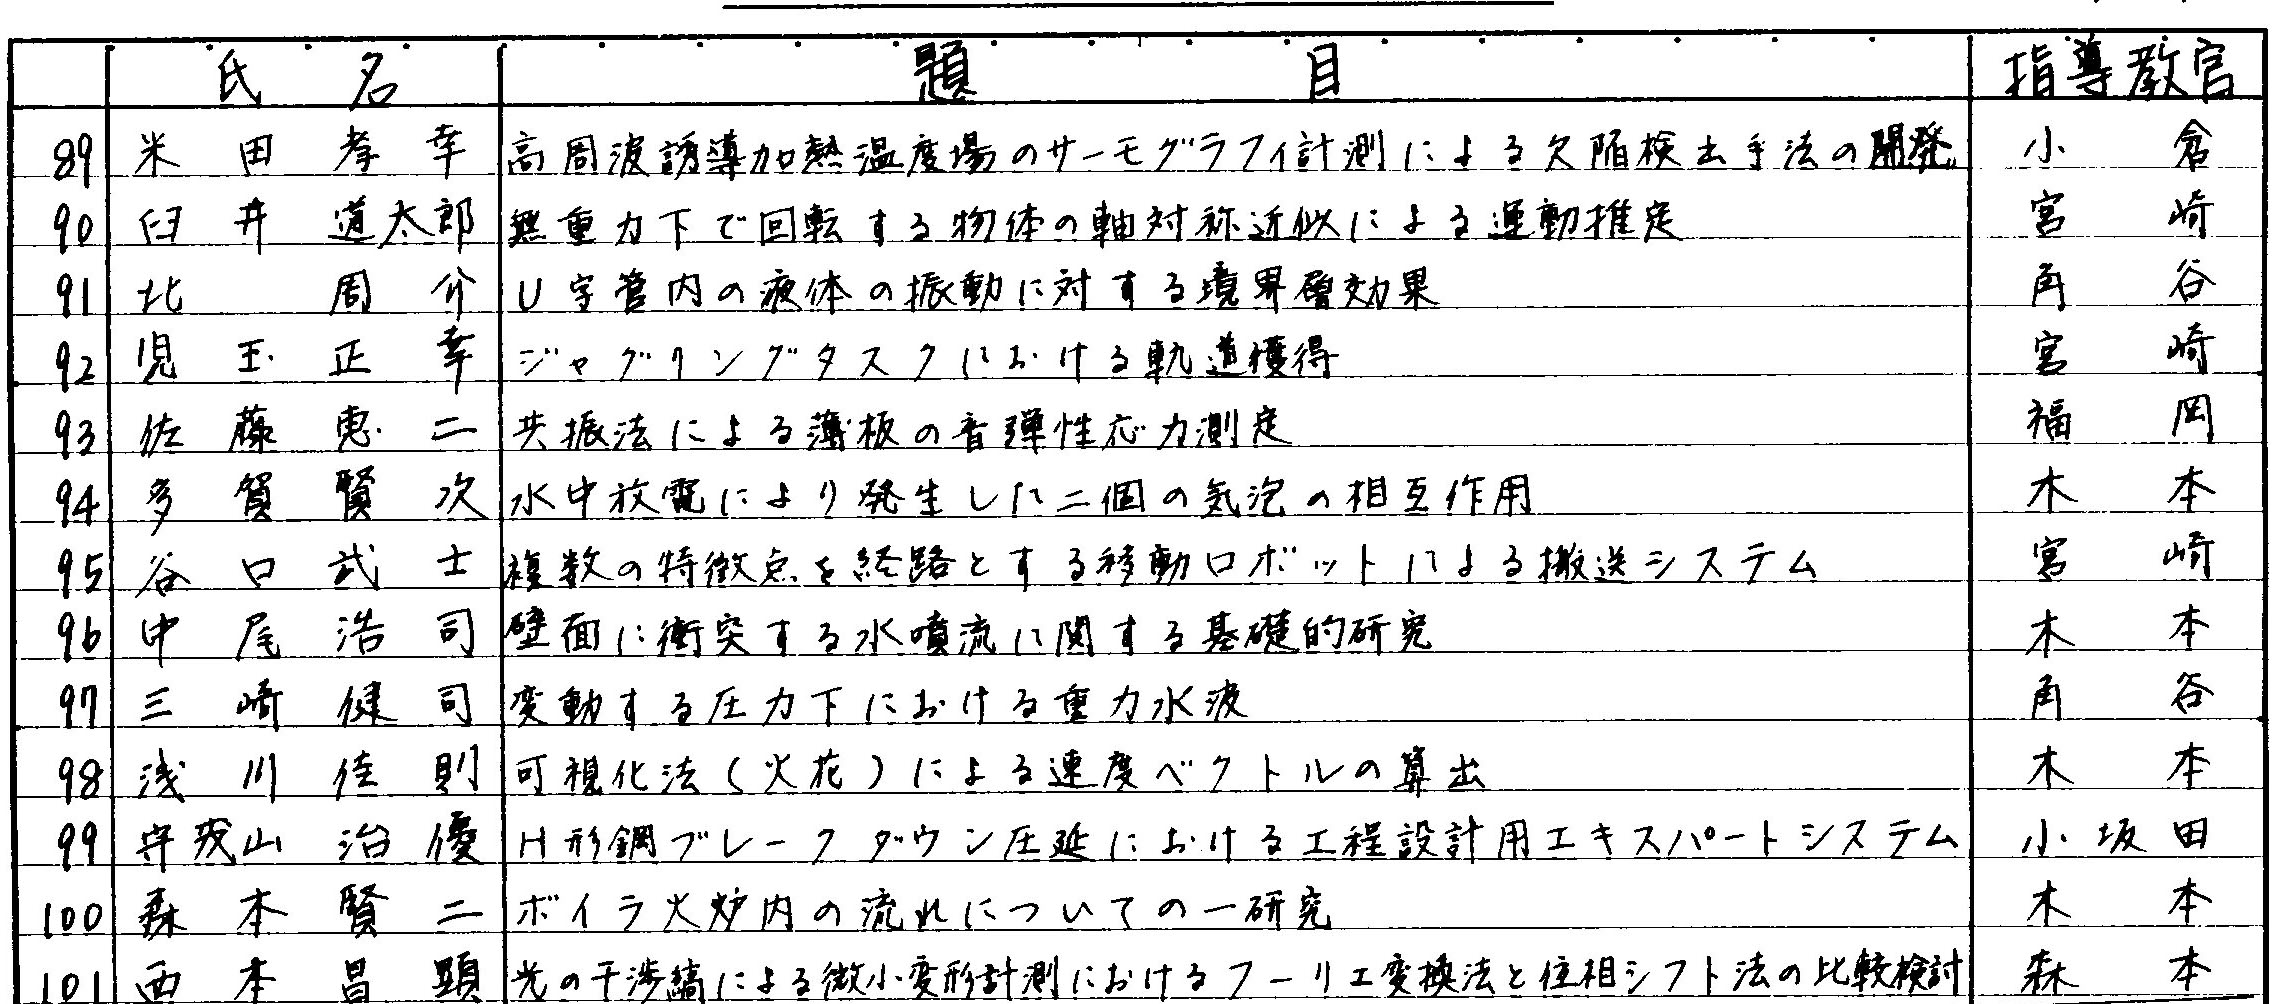 氏名 題目 指導教官
89 米田孝幸 高周波誘導加熱温度場のサーモグラフィ計測による欠陥検出手法の開発 小倉
90 臼井道太郎 無重力下で回転する物体の軸対称近似による運動推定 宮崎
91 北周介 U字管内の液体の振動に対する境界層効果 角谷
92 児玉正幸 ジャグリングタスクにおける軌道獲得 宮崎
93 佐藤恵二 共振法による薄板の音弾性応力測定 福岡
94 多賀賢次 水中放電により発生した二個の気泡の相互作用 木本
95 谷口武士 複数の特徴点を経路とする移動ロボットによる搬送システム 宮崎
96 中尾浩司 壁面に衝突する水噴流に関する基礎的研究 木本
97 三崎健司 変動する圧力下における重力水波 角谷
98 浅川佳則 可視化法(火花)による速度ベクトルの算出 木本
99 守茂山治優 H形鋼ブレークダウン圧延における工程設計用エキスパートシステム 小坂田
100 森本賢二 ボイラ火炉内の流れについての一研究 木本
101 西本昌顕 光の干渉縞による微小変形計測におけるフーリエ変換法と位相シフト法の比較検討 森本